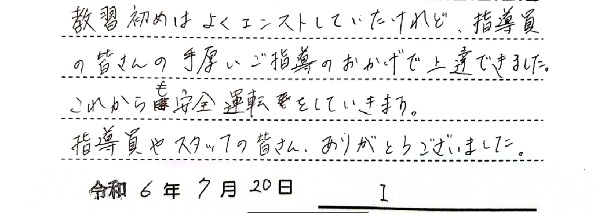 教習初めはよくエンストしていたけれど、指導員
の皆さんの手厚いご指導のおかげで上達できました。
これからも安全運転をしていきます。
指導員やスタッフの皆さん、ありがとうございました。
令和6年7月20日 I